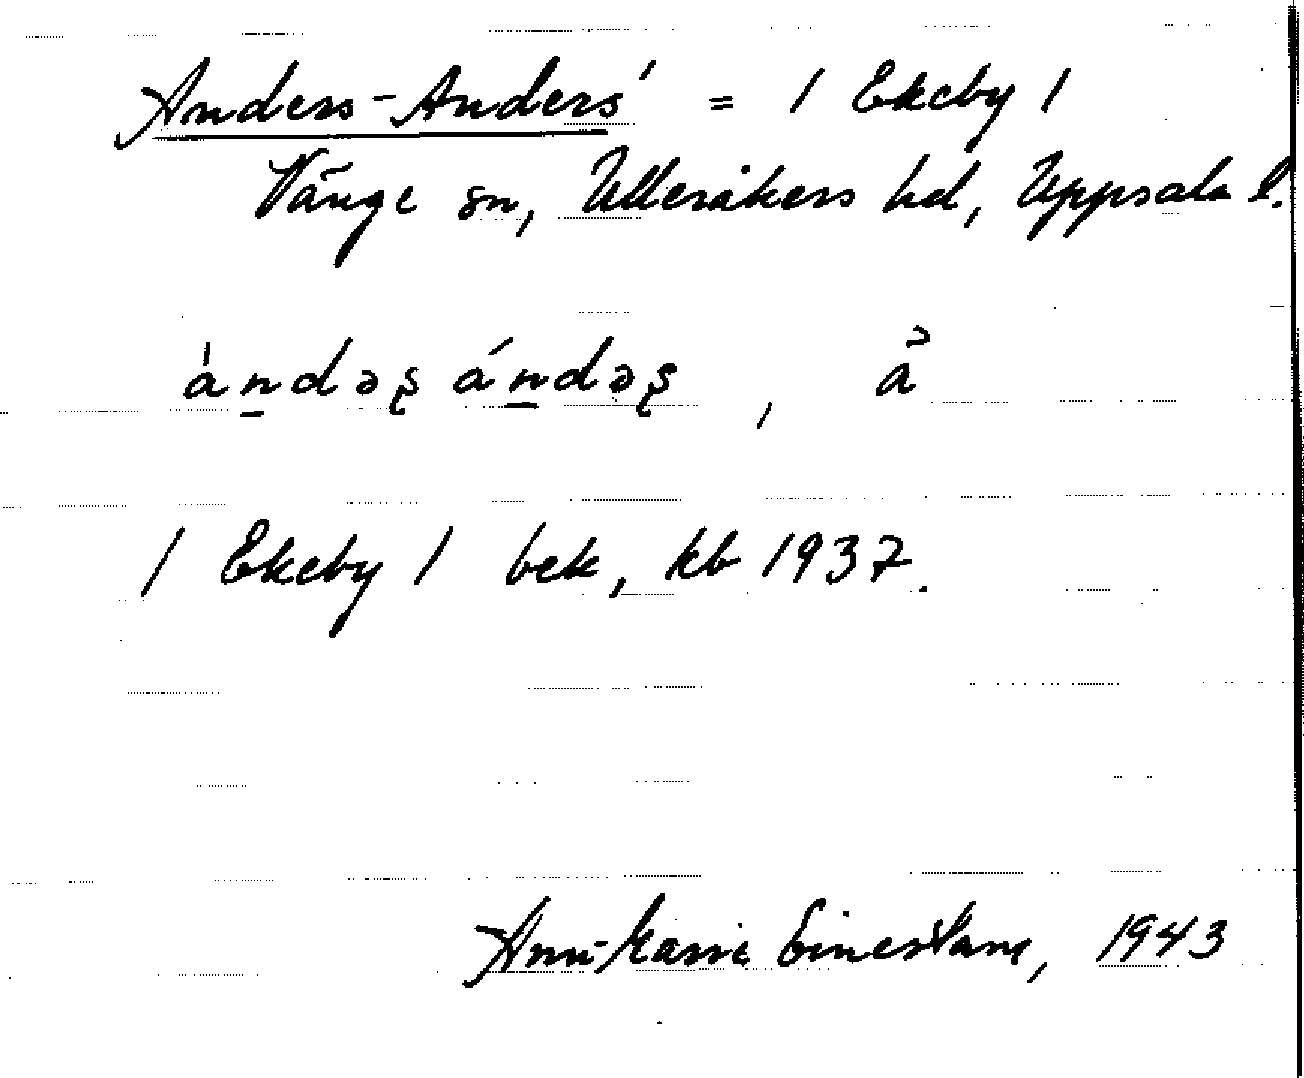 Anders-Anders' = / Ekeby /
Vänge sn, Ulleråkers hd, Uppsala l.
àndəʂ ándəʂ , å̉
/ Ekeby / bek, kb 1937.
Ann-Karie Einestam, 1943